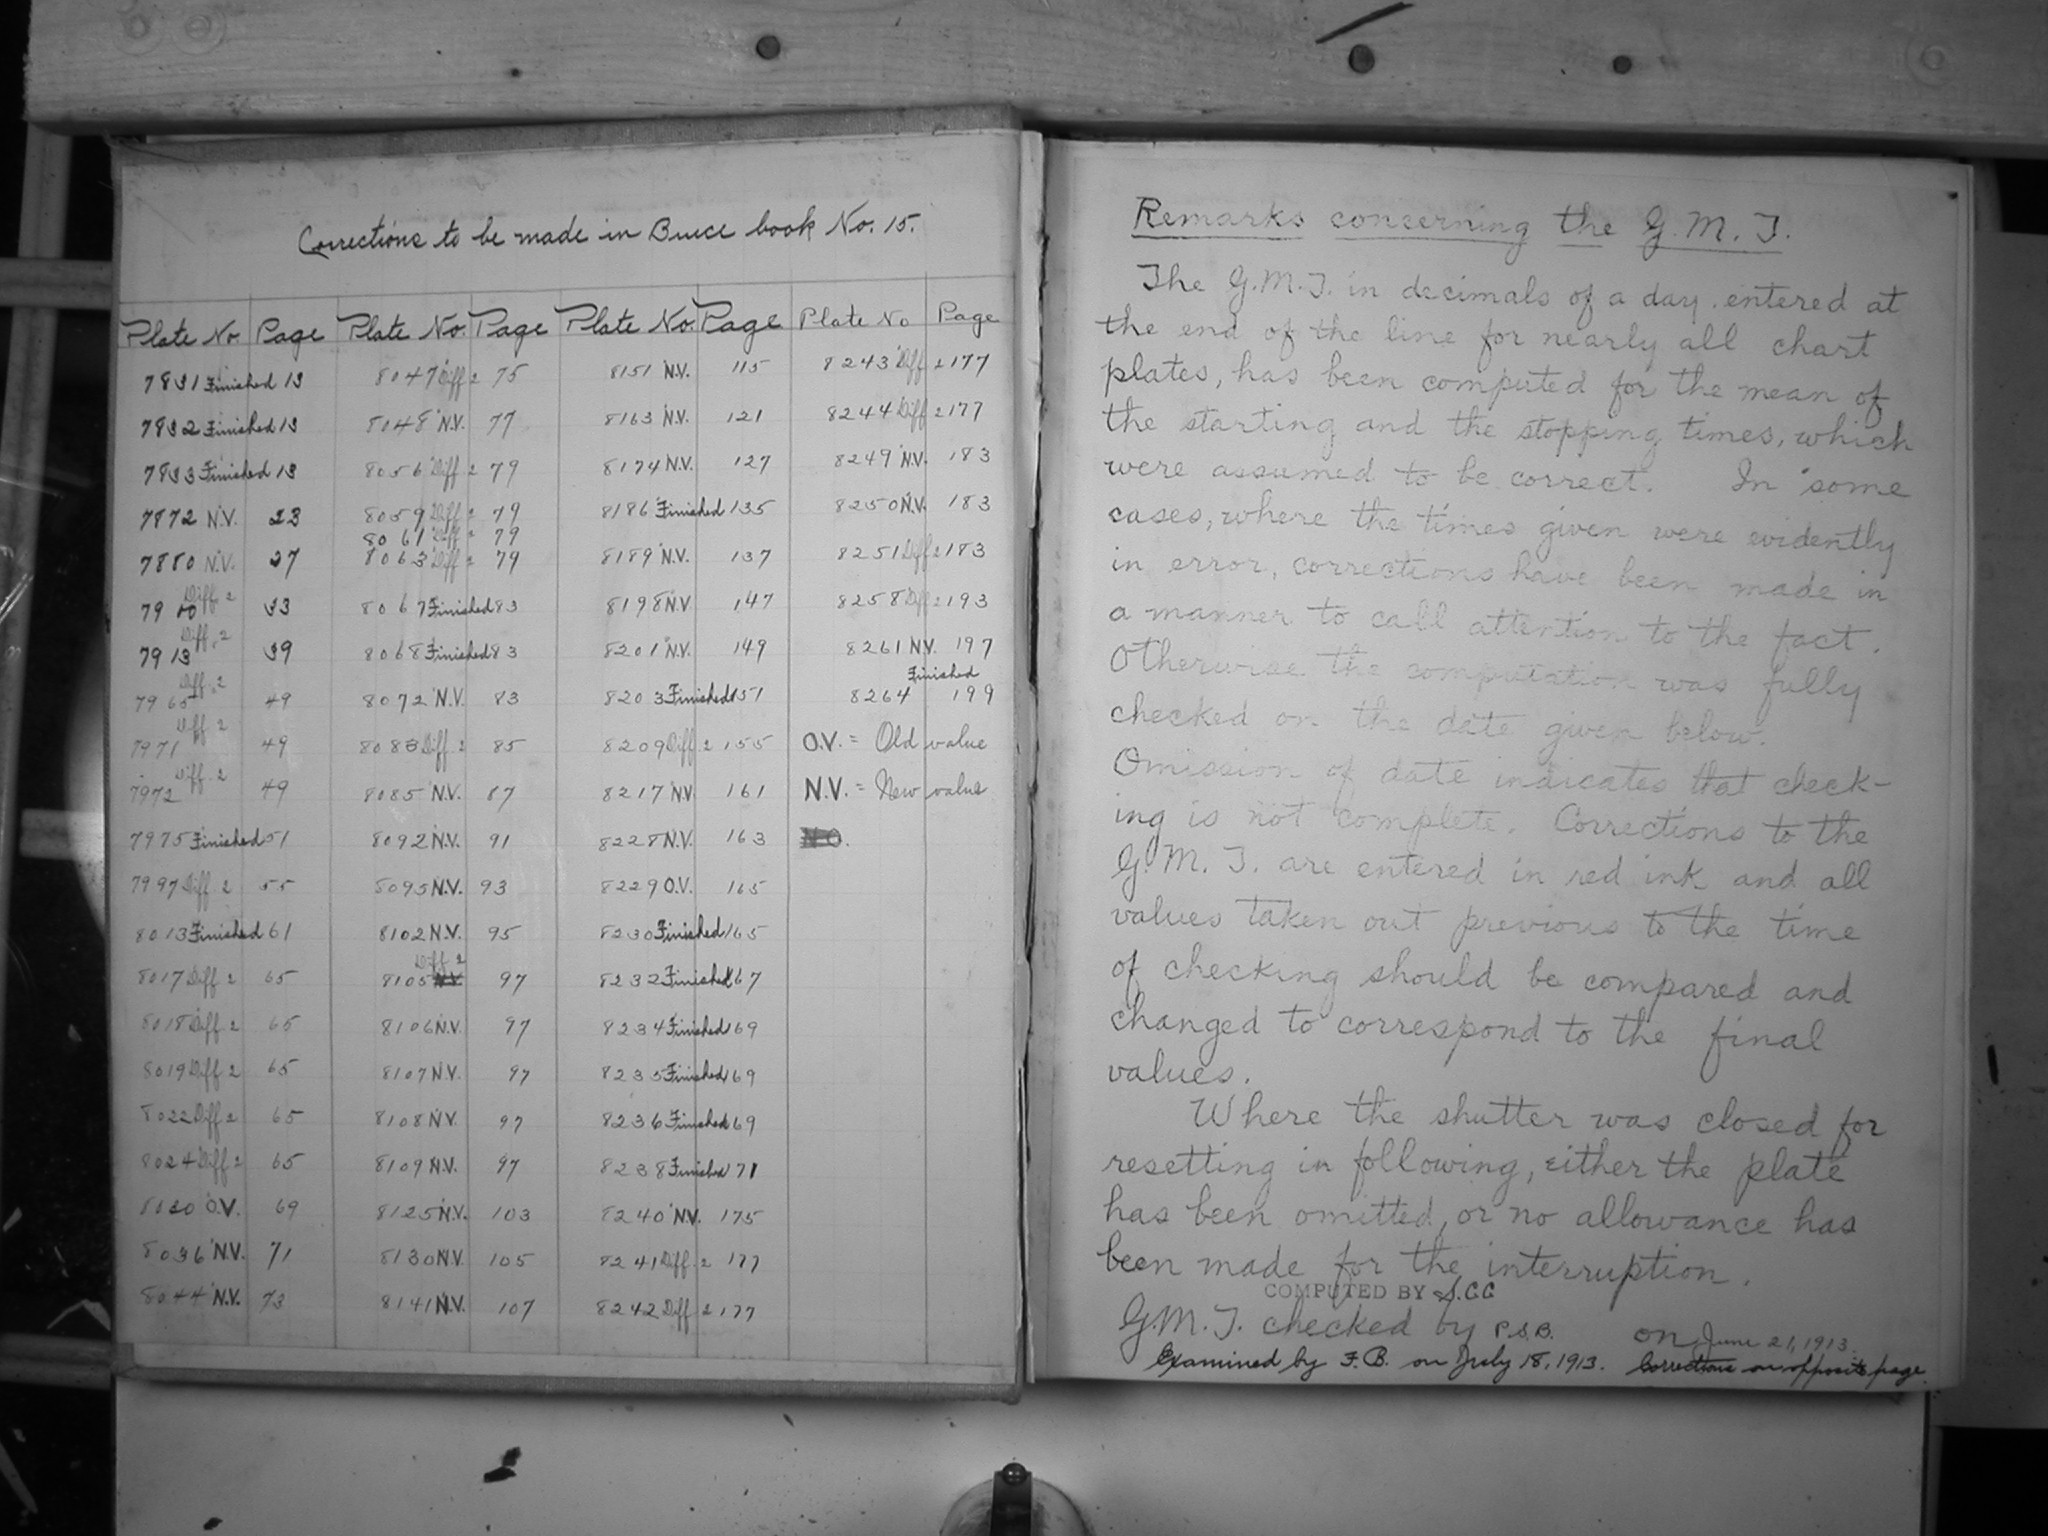 Corrections to be made in Bruce book No. 15.
Plate No. Page Plate No. Page Plate No. Page Plate No Page
7831 Finished 13 8047 Diff 2 75 8151 N.V. 115 8243 Diff 2 177
7832 Finished 13 8048 N.V. 77 8163 N.V. 121 8244 Diff 2 177
7833 Finished 13 8056 Diff 2 79 8174 N.V. 127 8249 N.V. 183
7872 N.V. 23 8059 Diff 2 79 8186 Finished 135 8250 N.V. 183
8061 Diff 2 79
7880 N.V. 27 8063 Diff 2 79 8189 N.V. 137 8251 Diff 2 183
7910 Diff. 2 33 8067 Finished 83 8198 N.V 147 8258 Diff 2 193
7913 Diff. 2 39 8068 Finished 83 8201 N.V. 149 8261 N.V. 197
7965 Diff. 2 49 8072 N.V. 83 8203 Finished 151 8264 Finished 199
7971 Diff 2 49 8083 Diff. 2 85 8209 Diff 2 155 O.V. = Old value
7972 Diff. 2 49 8085 N.V. 87 8217 N.V. 161 N.V. = New value
7975 Finished 51 8092 N.V. 91 8228 N.V. 163
7997 Diff. 2 55 8095 N.V. 93 8229 O.V. 165
8013 Finished 61 8102 N.V. 95 8230 Finished 165
8017 Diff 2 65 8105 Diff 2 97 8232 Finished 167
8018 Diff 2 65 8106 N.V. 97 8234 Finished 169
8019 Diff 2 65 8107 N.V. 97 8235 Finished 169
8022 Diff 2 65 8108 N.V. 97 8236 Finished 169
8024 Diff 2 65 8109 N.V. 97 8238 Finished 171
O.V. 69 8125 N.V. 103 8240 N.V. 175
8036 N.V. 71 8130 N.V. 105 8241 Diff. 2 177
8044 N.V. 73 8141 N.V. 107 8242 Diff 2 177
Remarks concerning the G.M.T.
The G.M.T. in decimals of a day entered at
the end of the line for nearly all chart
plates, has been computed for the mean of
the starting and the stopping times, which
were assumed to be correct. In some
cases, where the times given were evidently
in error, corrections have been made in
a manner to call attention to the fact.
Otherwise the computation was fully
checked on the date given below.
Omission of date indicates that check-
ing is not complete. Corrections to the
G.M.T. are entered in red ink and all
values taken out previous to the time
of checking should be compared and
changed to correspond to the final
values.
Where the shutter was closed for
resetting in following, either the plate
has been omitted, or no allowance has
been made for the interruption.
COMPUTED BY S.C.C
G.M.T. checked by P.S.B. on June 21, 1913.
Examined by F.B. on July 18, 1913. Corrections on opposite page.